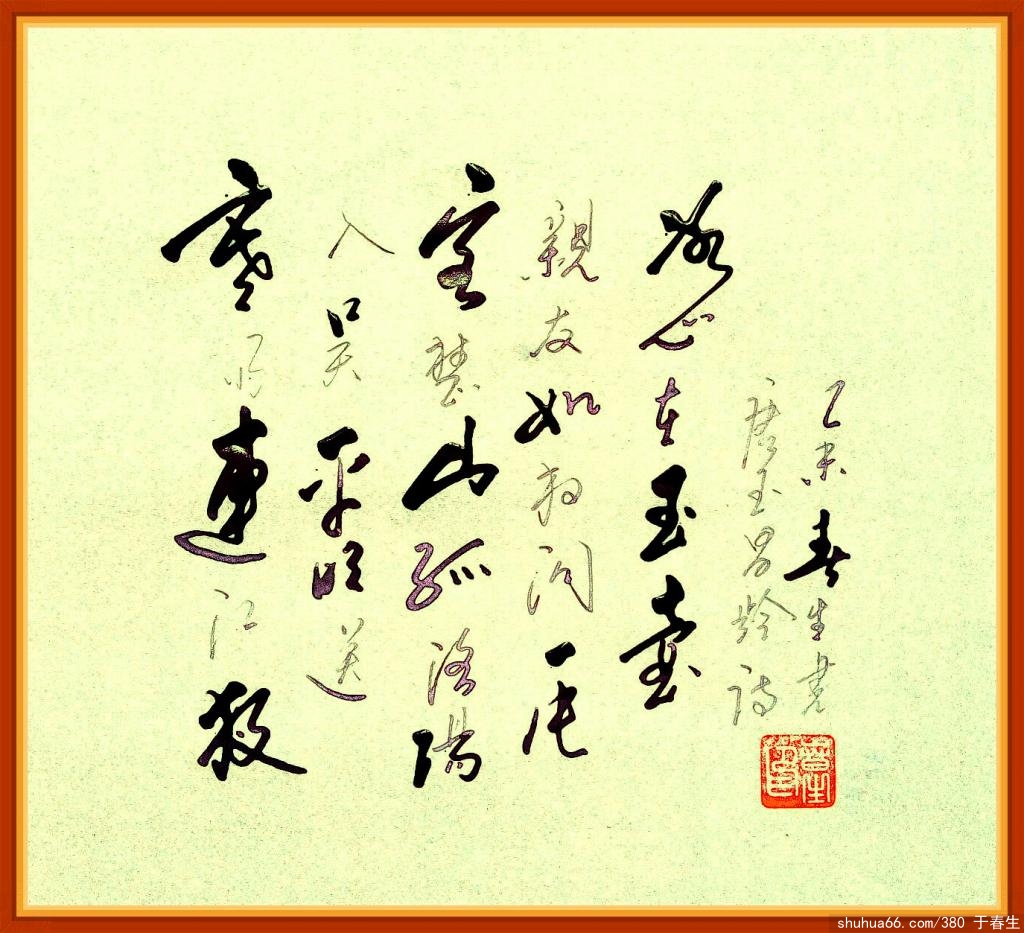 寒雨連江夜
入吳平明送
客楚山孤洛陽
親友如相问一片
冰心在玉壺
唐王昌龄詩
乙未春生書
shuhua66.com/380 于春生